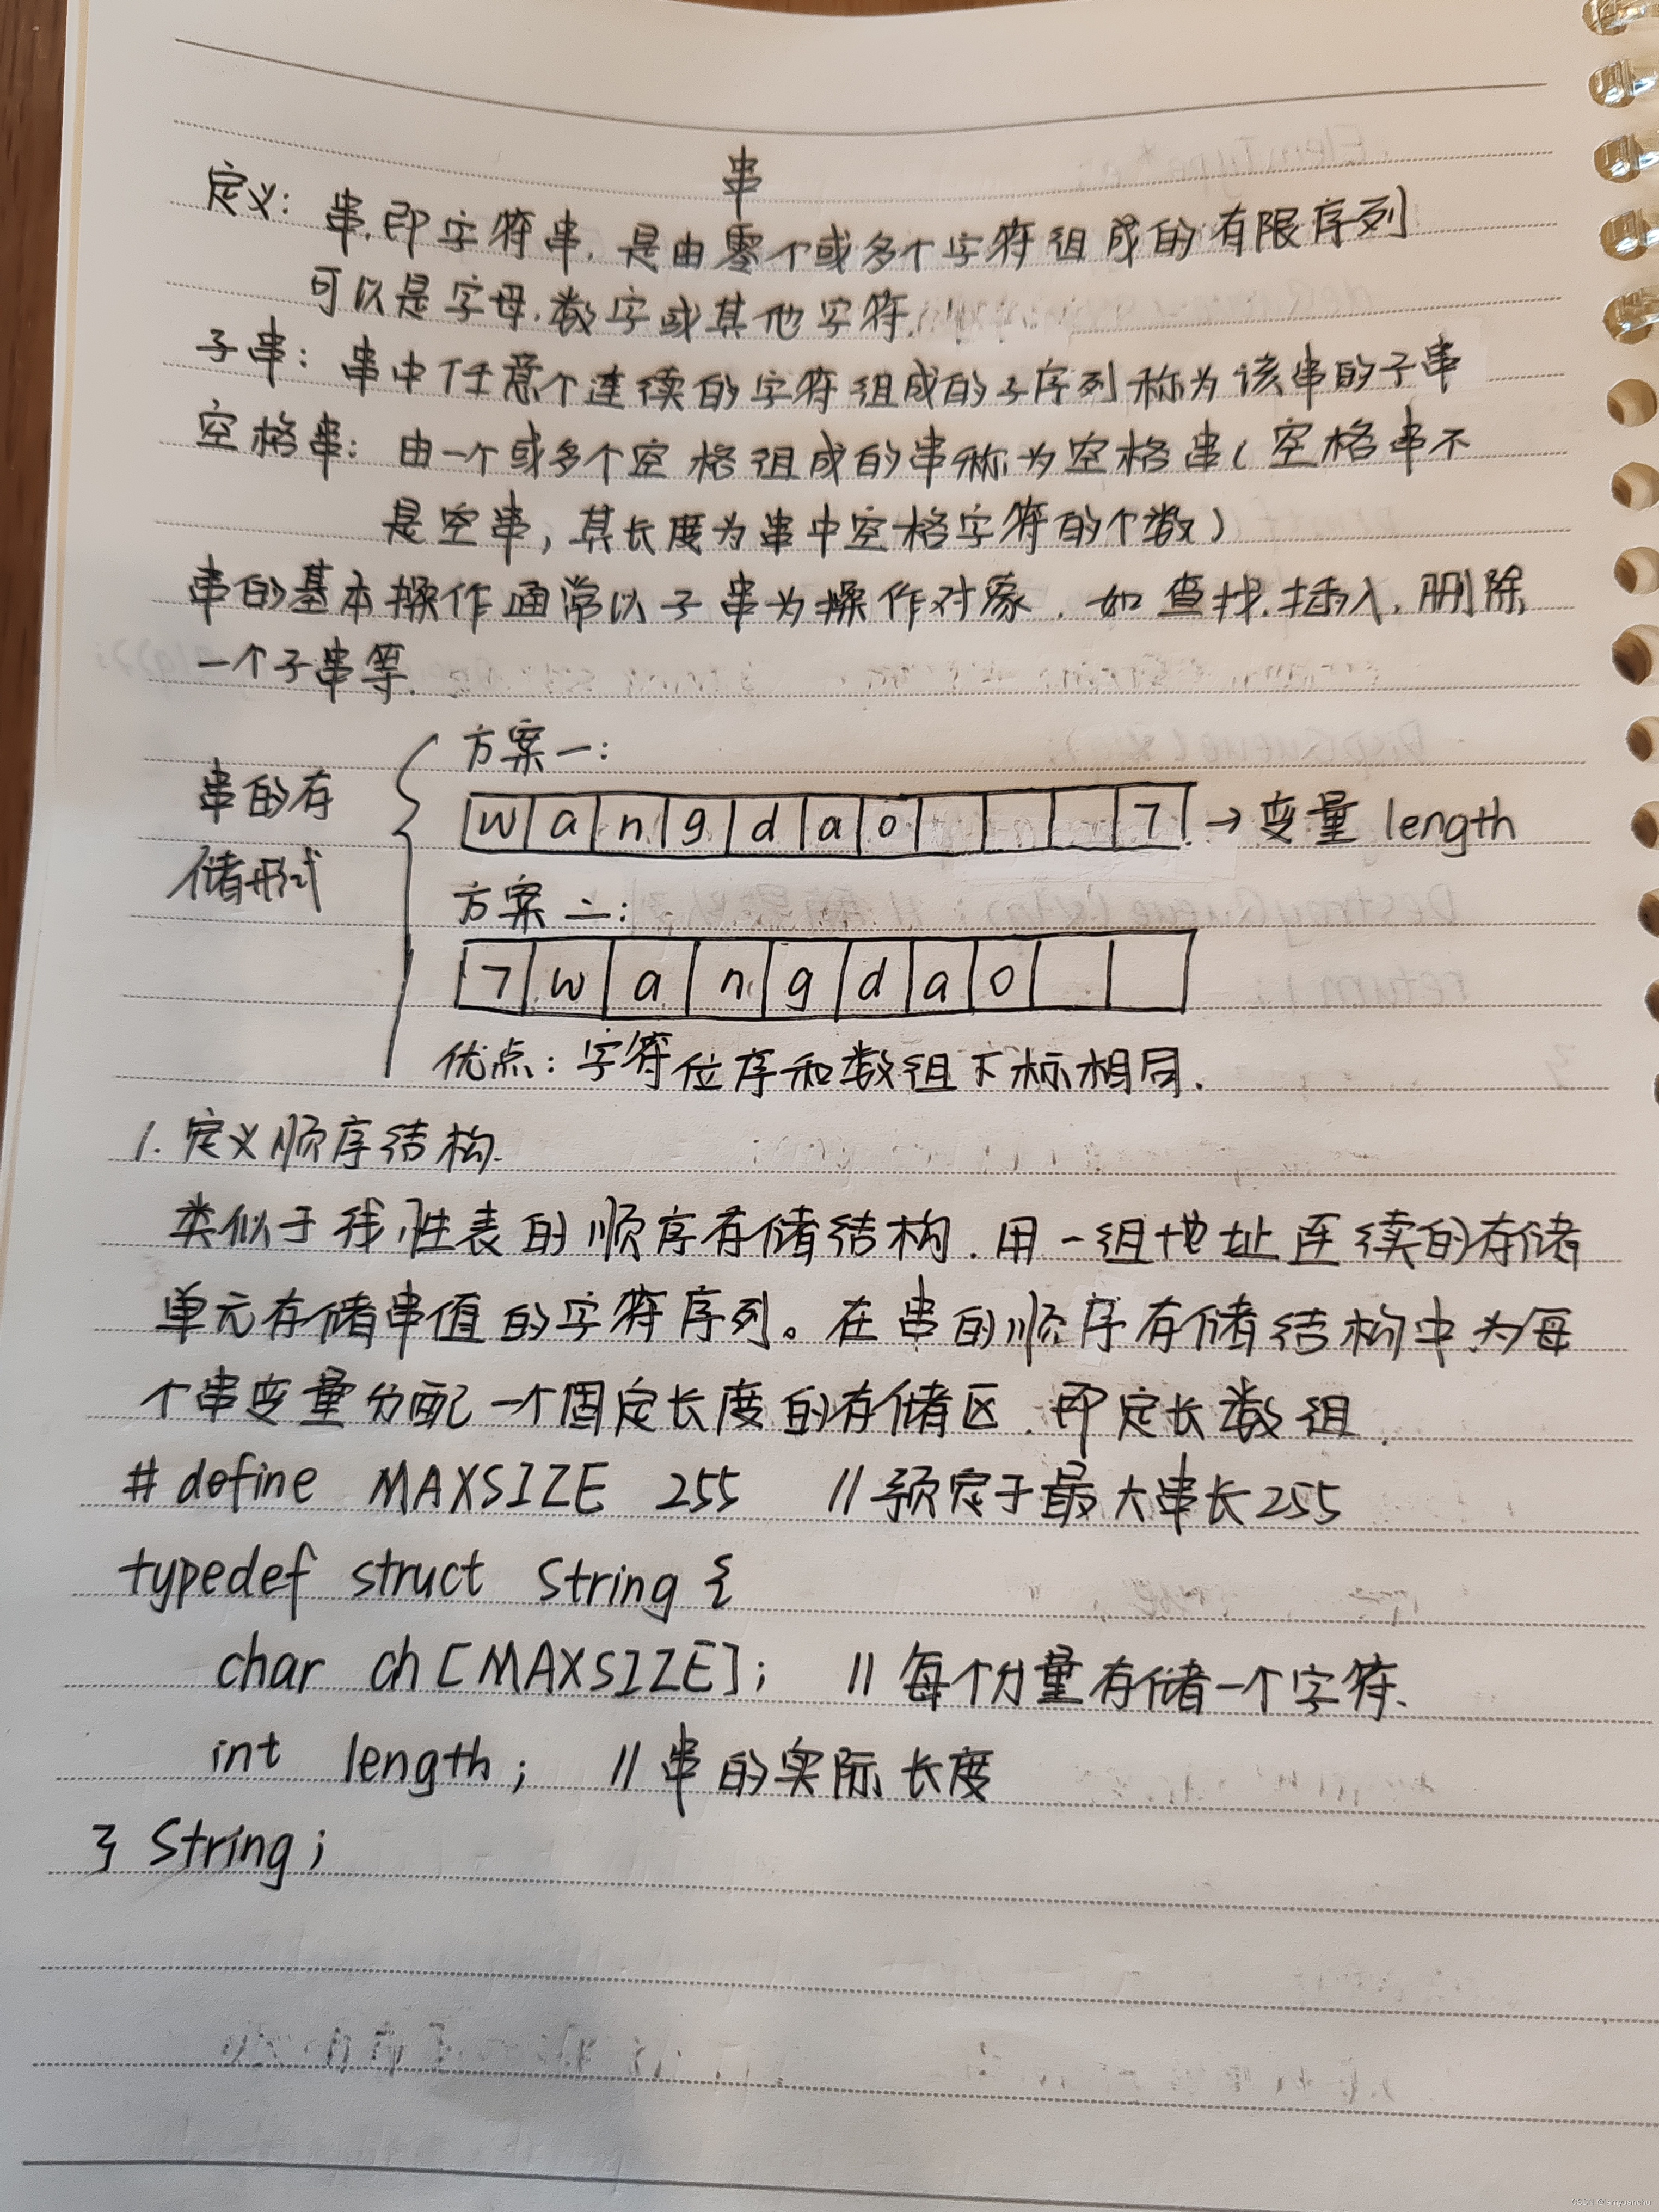 串
定义: 串,即字符串,是由零个或多个字符组成的有限序列
可以是字母,数字或其他字符.
子串: 串中任意个连续的字符组成的子序列称为该串的子串
空格串: 由一个或多个空格组成的串称为空格串(空格串不
是空串,其长度为串中空格字符的个数)
串的基本操作通常以子串为操作对象.如查找,插入,删除
一个子串等.
串的存
储形式
方案一:
w a n g d a o 7 → 变量 length
方案二:
7 w a n g d a o
优点: 字符位序和数组下标相同.
1. 定义顺序结构.
类似于线性表的顺序存储结构.用一组地址连续的存储
单元存储串值的字符序列。在串的顺序存储结构中为每
个串变量分配一个固定长度的存储区.即定长数组.
# define MAXSIZE 255 // 预定于最大串长255
typedef struct String {
char ch [MAXSIZE]; // 每个分量存储一个字符.
int length; // 串的实际长度
} String;
CSDN @iamyuanchu